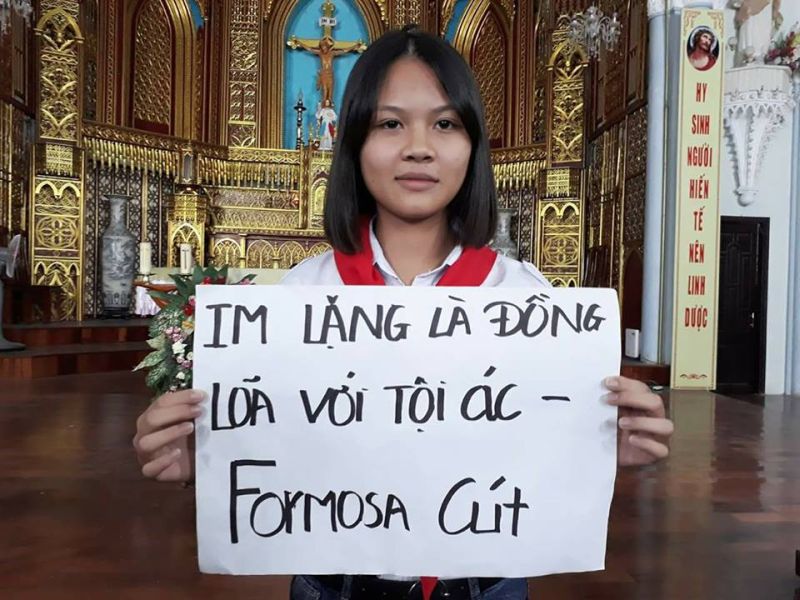 IM LẶNG LÀ ĐỒNG
LOÃ VỚI TỘI ÁC –
FORMOSA CÚT
HY
SINH
NGƯỜI
HIẾN
TẾ
NÊN
LINH
DƯỢC